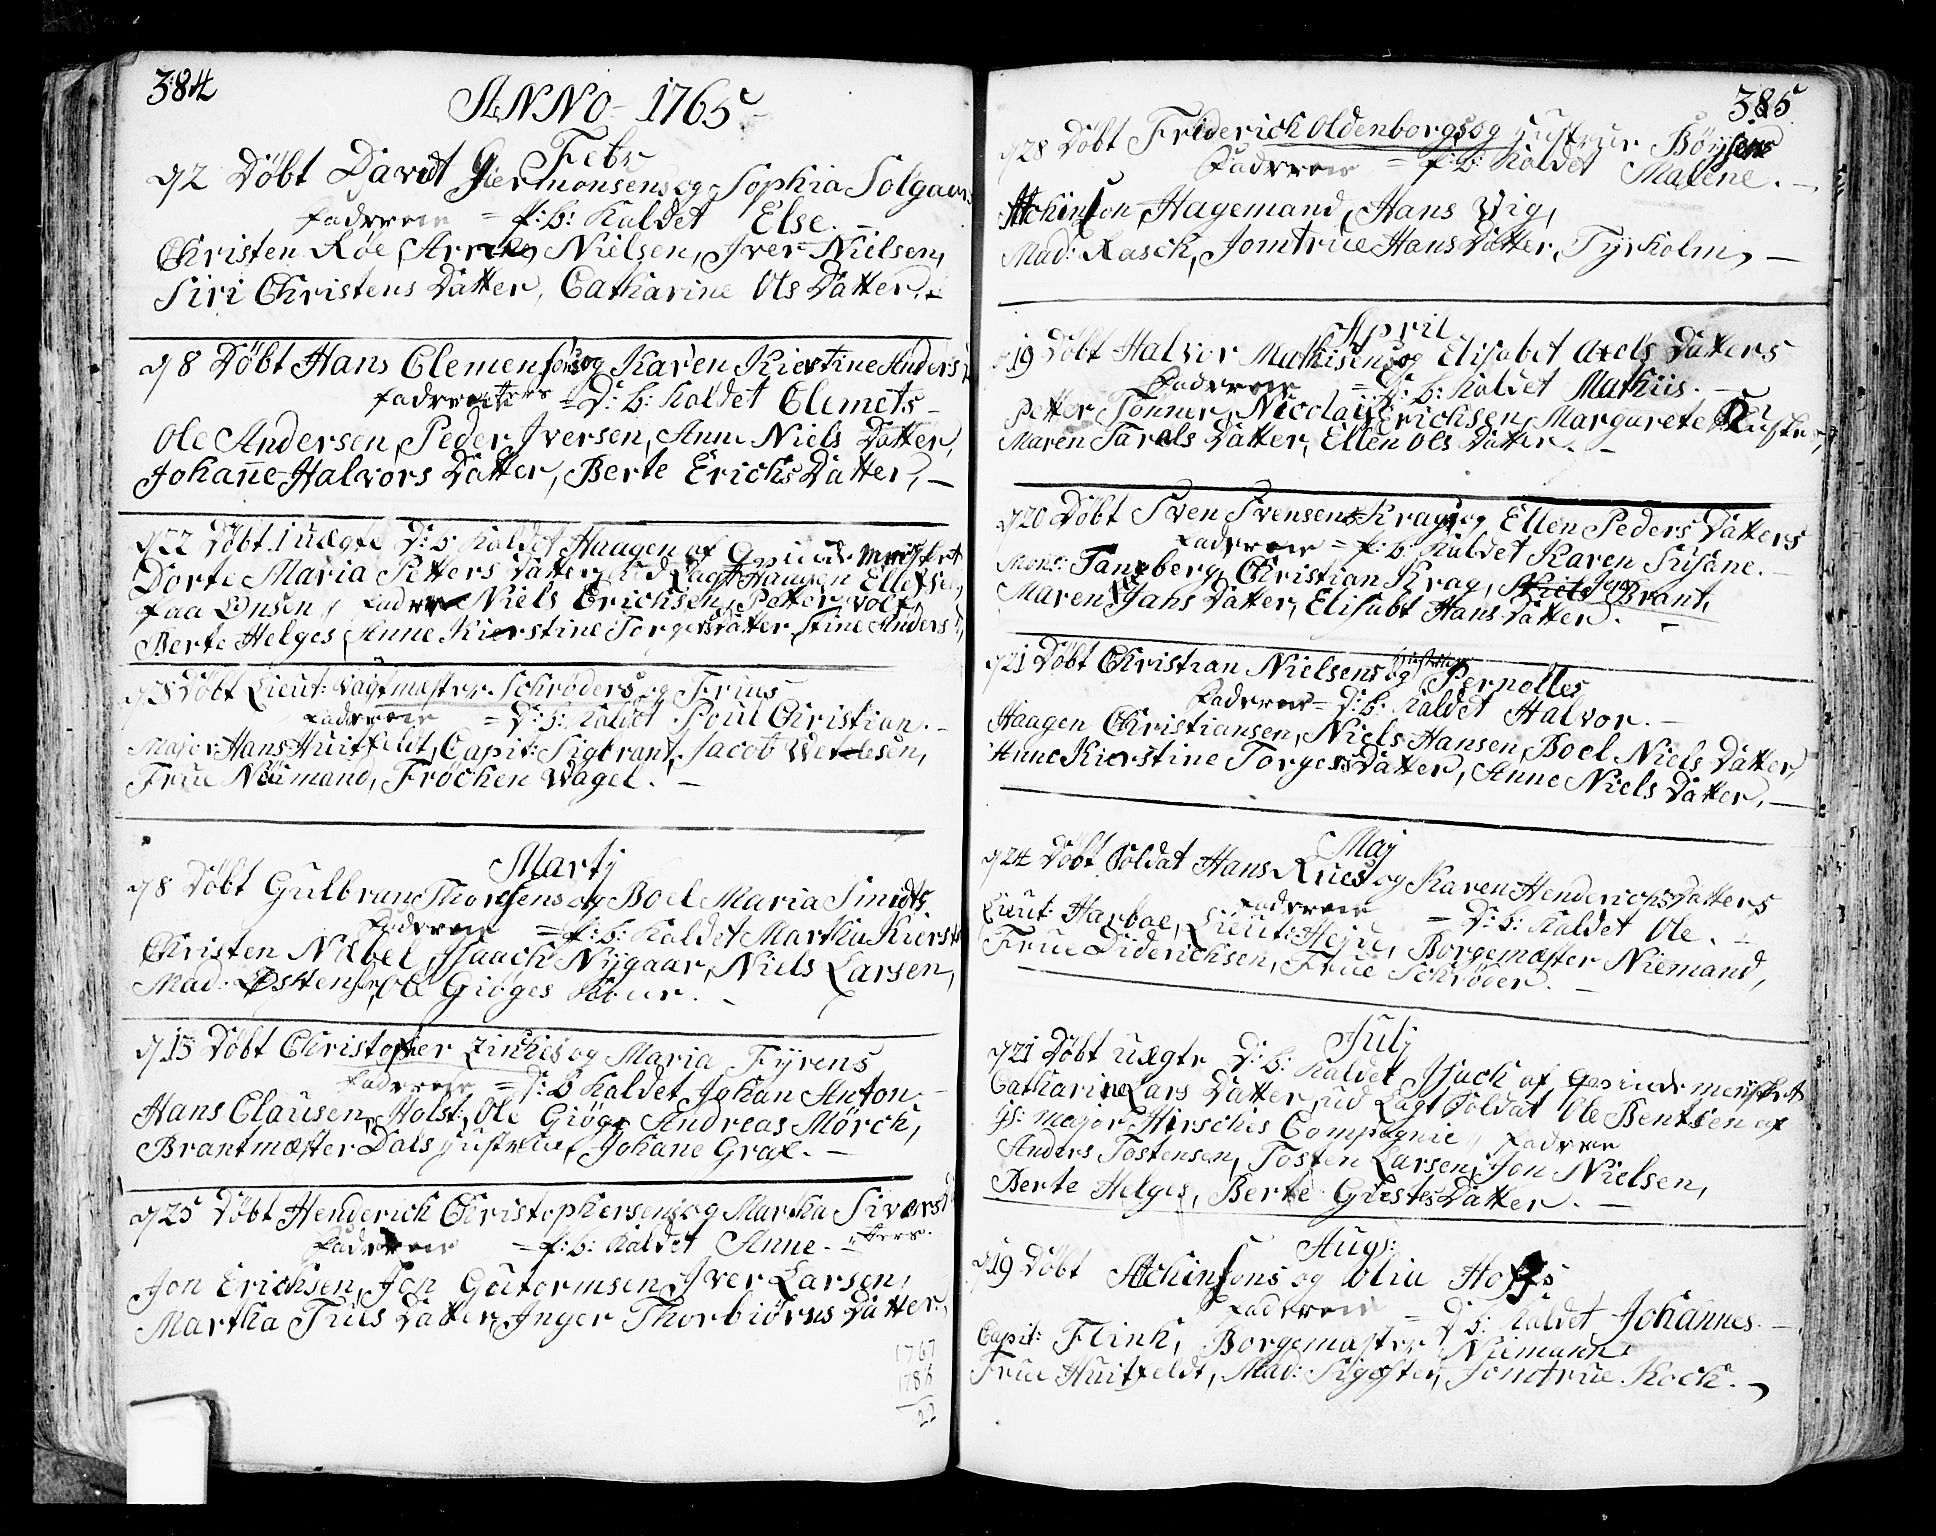 384
ANNO 1765
Febr
d 2 Døbt David Giermonsens og Sophia Solgaars
Faderne = P: b: Kaldet Else. -
Christen Røe, Nielsen, Iver Nielsen,
Siri Christens Datter, Catharine Ols Datter. -
d 8 Døbt Hans Clemensøns og Karen Kirstine Anders
Fadrene = D: b: Kaldet Clemets -
Ole Andersen, Peder Iversen, Anne Niels Datter,
Johanne Halvors Datter, Berte Erichs Datter, -
d 22 Døbt 1 uægte D: b: Kaldet Haagen af Qvinde Mennisket
Dorte Maria Petters Datter, ud Lagt Haagen Ellefsen
paa Fadrene Niels Erichsen, Petter Wolf,
Berte Helges, Anne Kierstine Torgers Datter, Stine Anders D,
Døbt Lieut: Wagtmæster Schrøders og Frues
Fadrene = D: b: Kaldet Poul Christian. -
Major Hans Huitfeldt, Capit: Sigbrant, Jacob Wetlesen,
Frue Niimand, Frøcken Wagel. -
Martj
d 8 Døbt Gulbran Thoresens og Boel Maria Smidts
Fadrene = P: b: Kaldet Martha Kierst
Christen Nabel, Isaach Nÿgaar, Niels Larsen,
Mad: Østensen, Ole Giøges -
d 13 Døbt Christopher Zinkies og Maria Fÿrens
Fadrene = D: b Kaldet Johan Anton. -
Hans Clausen Holst, Ole Giøge Andreas Mørch,
Brantmæster Dals Hustrue, Johane Grae. -
d 25 Døbt Henderich Christophersens og Martha Sivers D
Fadrene = P: b: Kaldet Anne. - atters.
Jon Erichsen, Jon Gutormsen, Iver Larsen,
Martha Trues Datter, Inger Thorbiørns Datter,
1767
1786
22
385
d 28 Døbt Friderich Oldenborgs og Hustrue Børresens
Fadrene = P: b: Kaldet Malene. -
Atchinson, Hagemand, Hans Wig,
Mad: Rasch, Jomfrue Hans Datter, Tÿrholm, -
April
19 Døbt Halvor Mathisens og Elisabet Axels Datters
Fadrene = D: b: Kaldet Mathiis. -
Petter Tønner, Nicolaii Erichsen, Margarete
Maren Tarals Datter, Ellen Ols Datter. -
d 20 Døbt Sven Svensens Krags og Ellen Peders Datters
Fadrene = P: b: Kaldet Karen Susane. -
Mons: Tanberg, Christian Krag, Brant,
Maren Jahs Datter, Elisabt Hans Datter. -
d 21 Døbt Christian Nielsens og Hustrue Pernolles
Fadrene = D: b: Kaldet Halvor. -
Haagen Christiansen, Niels Hansen, Boel Niels Datter,
Anne Kierstine Torgers Datter, Anne Niels Datter, -
Maj
d 24 Døbt Soldat Hans Rues og Karen Henderichs Datters
Fadrene = D: b: Kaldet Ole. -
Lieut: Harboe, Lieut: Heju, Borgemæster Niemand,
Frue Diderichsen, Frue Schrøder. -
Julj
d 21 Døbt uægte D: b: Kaldet Isach af Qvindemennisket
Catharine Lars Datter, ud Lagt Soldat Ole Bentsen af
Hr: Major Hirsches Compagnie, Fadrene
Anders Tostensen, Tosten Larsen, Jon Nielsen,
Berte Helges, Berte Giestes Datter. -
Augs:
d 19 Døbt Atchinsons og Olia Hoffs
Fadrene = D: b: Kaldet Johannes. -
Capit: Flink, Borgemæster Niemann
Frue Huitfeldt, Mad: Sigester, Jomfrue Kock. -